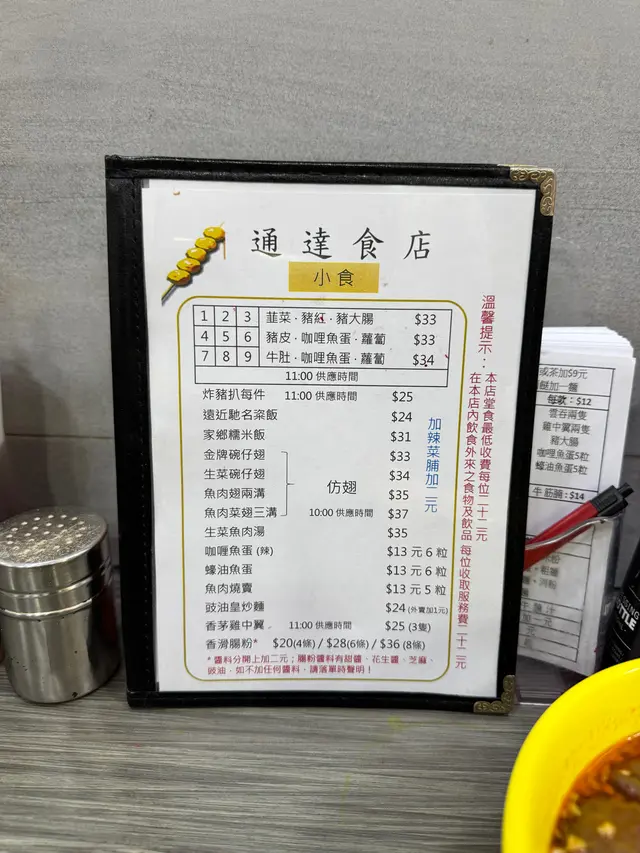 通達食店
小食
1 2 3 韮菜.豬紅.豬大腸 $33
4 5 6 豬皮.咖哩魚蛋.蘿蔔 $33
7 8 9 牛肚.咖哩魚蛋.蘿蔔 $34
11:00 供應時間
炸豬扒每件 11:00 供應時間 $25
遠近馳名粢飯 $24
家鄉糯米飯 $31
金牌碗仔翅 $33
生菜碗仔翅 $34
魚肉翅兩溝 $35
魚肉菜翅三溝 $37
仿翅
10:00 供應時間
生菜魚肉湯 $35
咖喱魚蛋 (辣) $13 元 6 粒
蠔油魚蛋 $13 元 6 粒
魚肉燒賣 $13 元 5 粒
豉油皇炒麵 $24 (外賣加1元)
香茅雞中翼 11:00 供應時間 $25 (3隻)
香滑腸粉* $20(4條) / $28(6條) / $36 (8條)
*醬料分開上加二元；腸粉醬料有甜醬、花生醬、芝麻、
豉油，如不加任何醬料，請落單時聲明！
加辣菜脯加二元
溫馨提示：
本店堂食最低收費每位二十二元
在本店內飲食外來之食物及飲品 每位收取服務費二十二元
或茶加$9元
每款：$12
雲吞兩隻
雞中翼兩隻
豬大腸
咖哩魚蛋5粒
蠔油魚蛋5粒
牛筋腩：$14